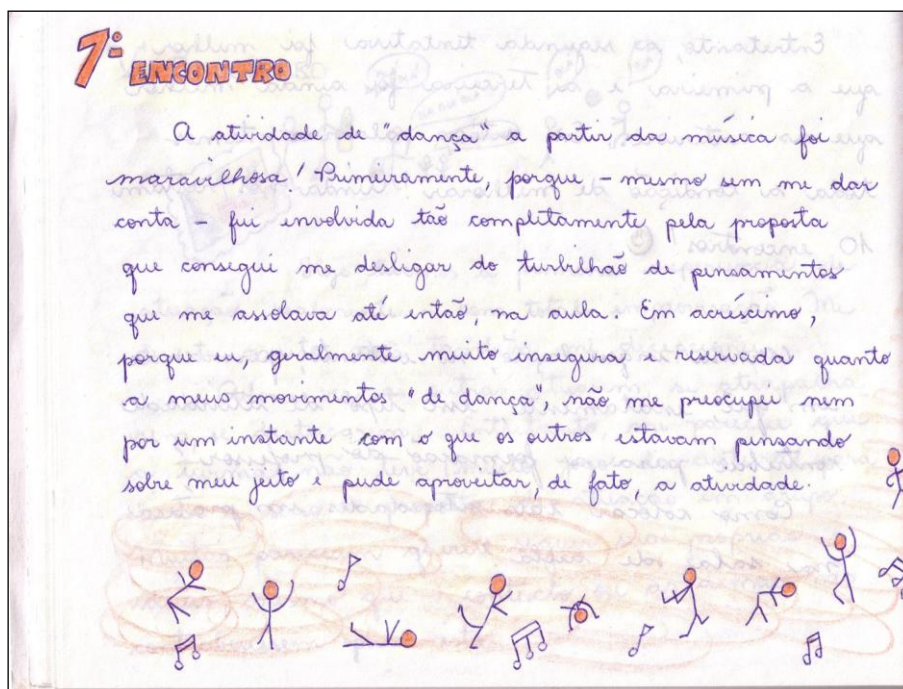 7º
ENCONTRO
A atividade de "dança" a partir da música foi
maravilhosa! Primeiramente, porque - mesmo sem me dar
conta - fui envolvida tão completamente pela proposta
que consegui me desligar do turbilhão de pensamentos
que me assolava até então, na aula. Em acréscimo,
porque eu, geralmente muito insegura e reservada quanto
a meus movimentos "de dança", não me preocupei nem
por um instante com o que os outros estavam pensando
sobre meu jeito e pude aproveitar, de fato, a atividade.